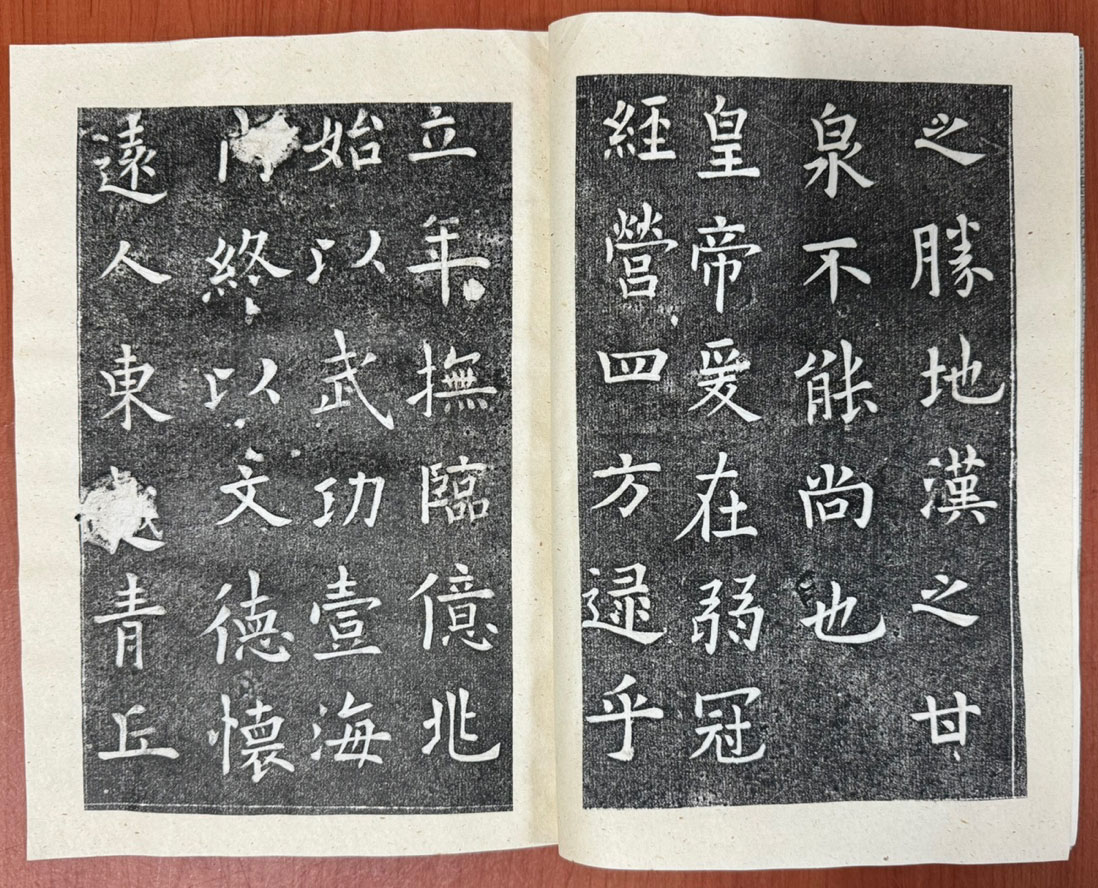 之勝地漢之甘
泉不能尚也
皇帝爰在弱冠
經營四方逯乎
立年撫臨億兆
始以武功壹海
內終以文德懷
遠人東越青丘